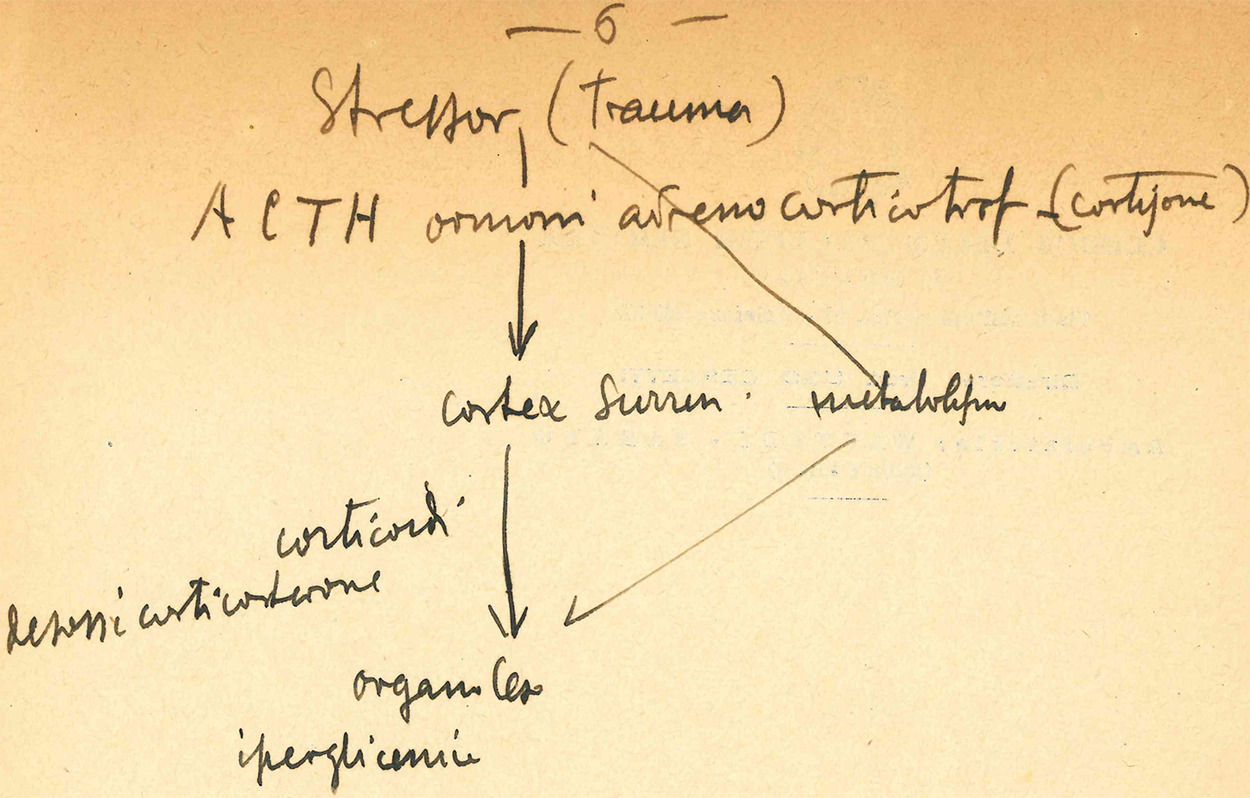 — 6 —
Stressor (Trauma)
ACTH ormoni adrenocorticotrof (cortisone)
cortex surren. metabolism
corticoidi
desossicorticosterone
organi leso
iperglicemia